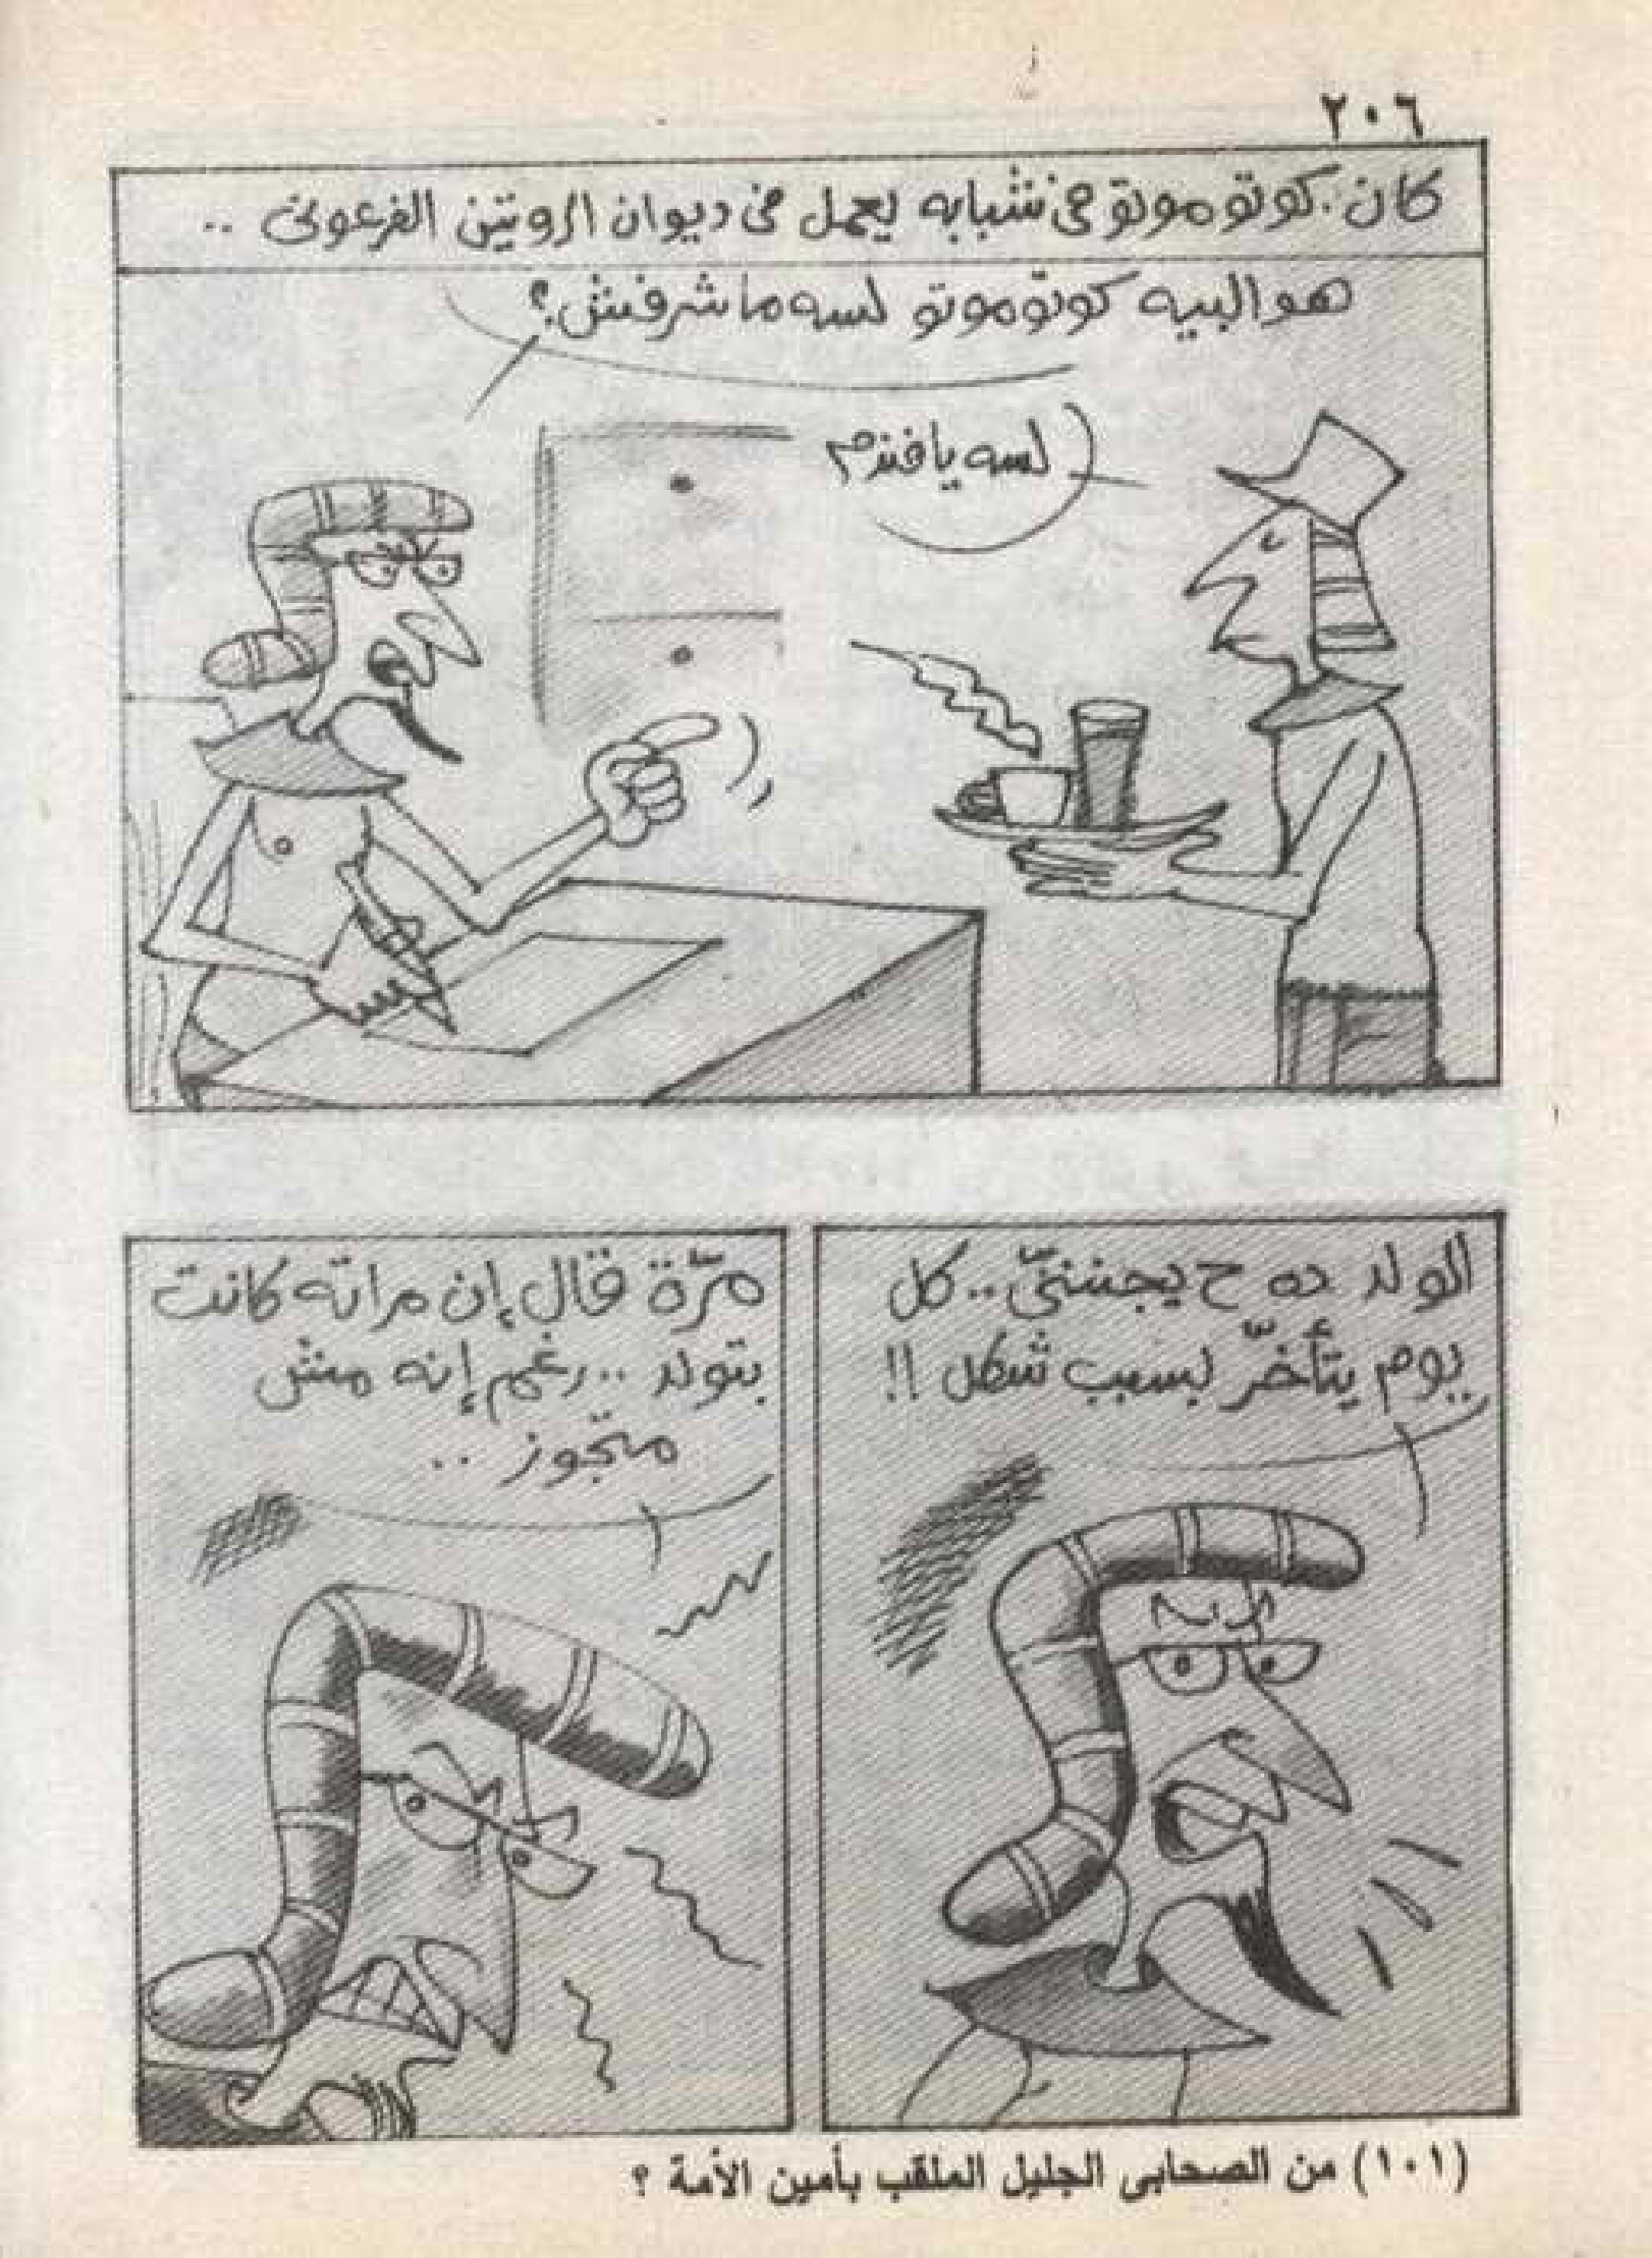 ٢٠٦
كان كوتوموتو فى شبابه يعمل فى ديوان الروتين الفرعونى ..
هو البيه كوتوموتو لسه ماشرفش؟
لسه يا فندم
الولد ده ح يجننّى .. كل
يوم يتأخّر بسبب شكل !!
مرّة قال إن مراته كانت
بتولد .. رغم إنه مش
متجوز ..
(١٠١) من الصحابى الجليل الملقب بأمين الأمة ؟